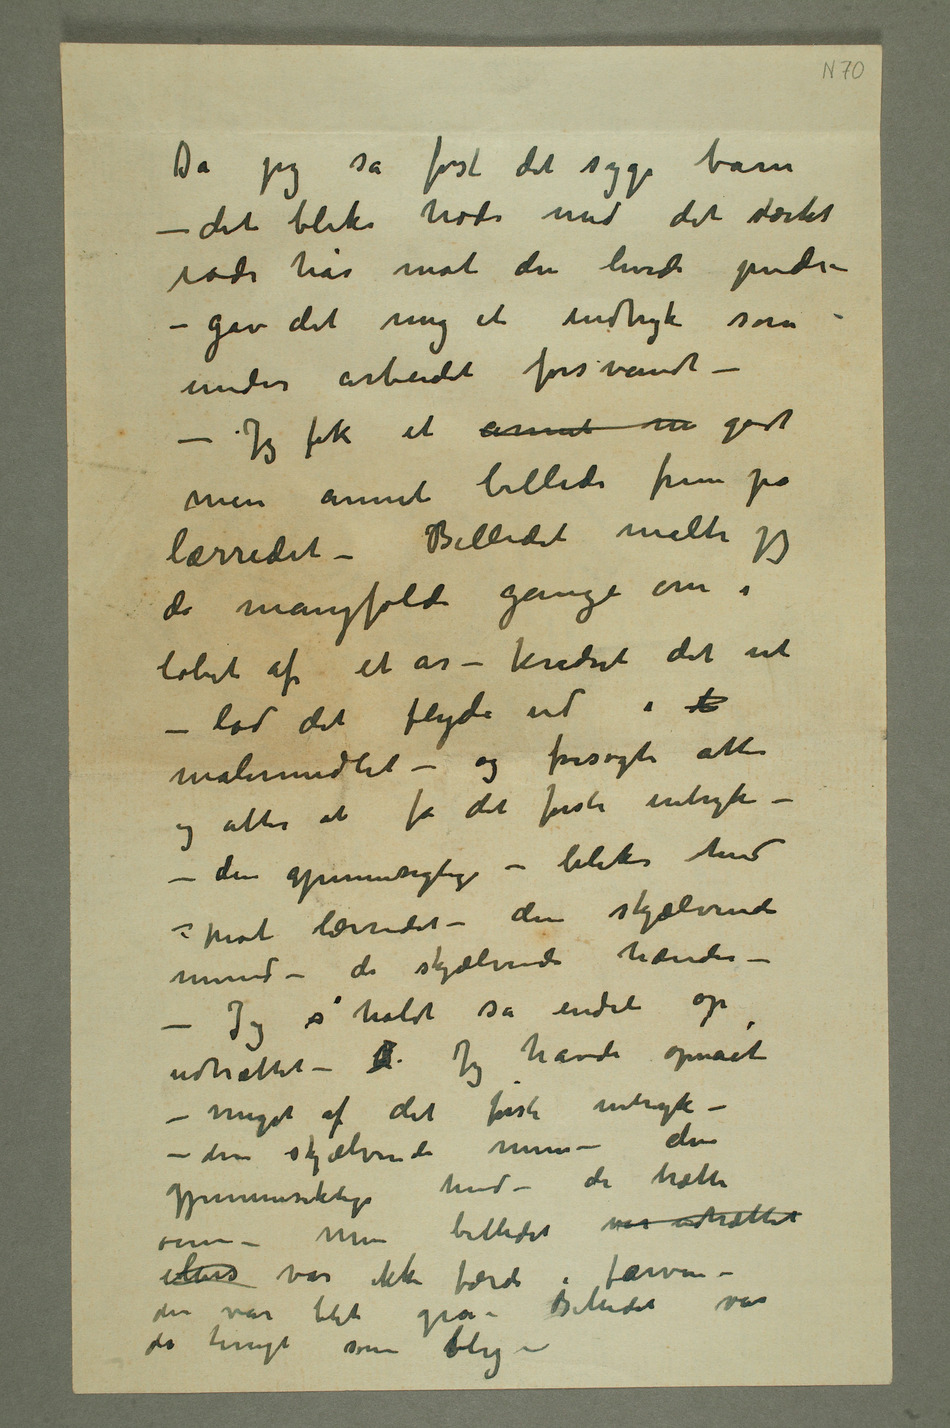 N 70
Da jeg så først det syge barn
– det bleke hode med det stærkt
røde hår mot den hvide pude –
– gav det mig et indtryk som
under arbeidet forsvandt –
– Jeg fik et annet m godt
men annet billede frem på
lærredet – Billedet malte jeg
da mangfoldi gange om i
løbet af et år – kradset det ut
– lod det flyde ud i t
malermedlet – og forsøgte atter
og atter at få det første intryk –
– den gjennemsigtige – bleke hud
mot lærredet – den skjælvende
mund – de skjælvende hænder –
– Jeg s holdt så endeli op
udtrættet – Jeg havde opnaaet
– meget af det første intryk –
– den skjælvende mun – den
gjennemsiktige hud – de trætte
øine – Men billedet var udtrættet
ellers var ikke færdi i farven –
den var blit grå – Billedet var
da tungt som bly –